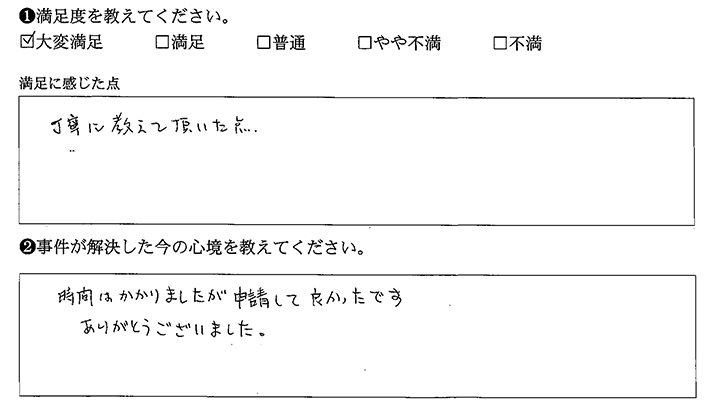 ❶満足度を教えてください。
☑大変満足 □満足 □普通 □やや不満 □不満
満足に感じた点
丁寧に教えて頂いた点.
❷事件が解決した今の心境を教えてください。
時間はかかりましたが申請して良かったです
ありがとうございました。